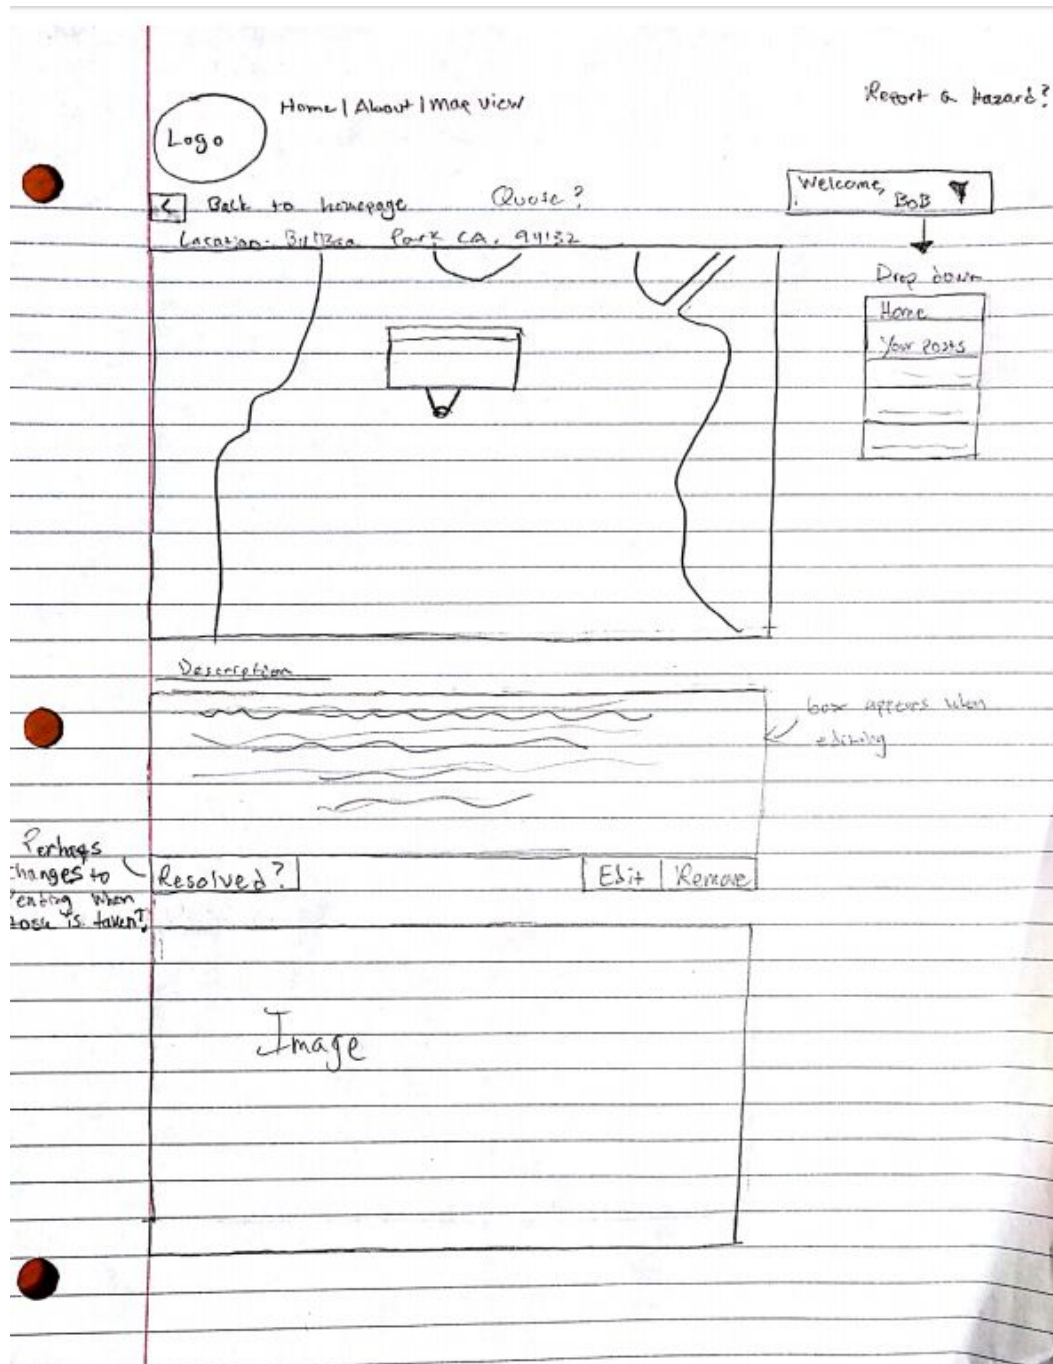 Home | About | Map view
Report a Hazard?
Logo
< Back to homepage
Quote?
Welcome,
BOB
Location: Park CA, 94132
Drop down
Home
Your Posts
Description
box appears when
editing
Perhaps
changes to
when
is taken?
Resolved?
Edit | Remove
Image